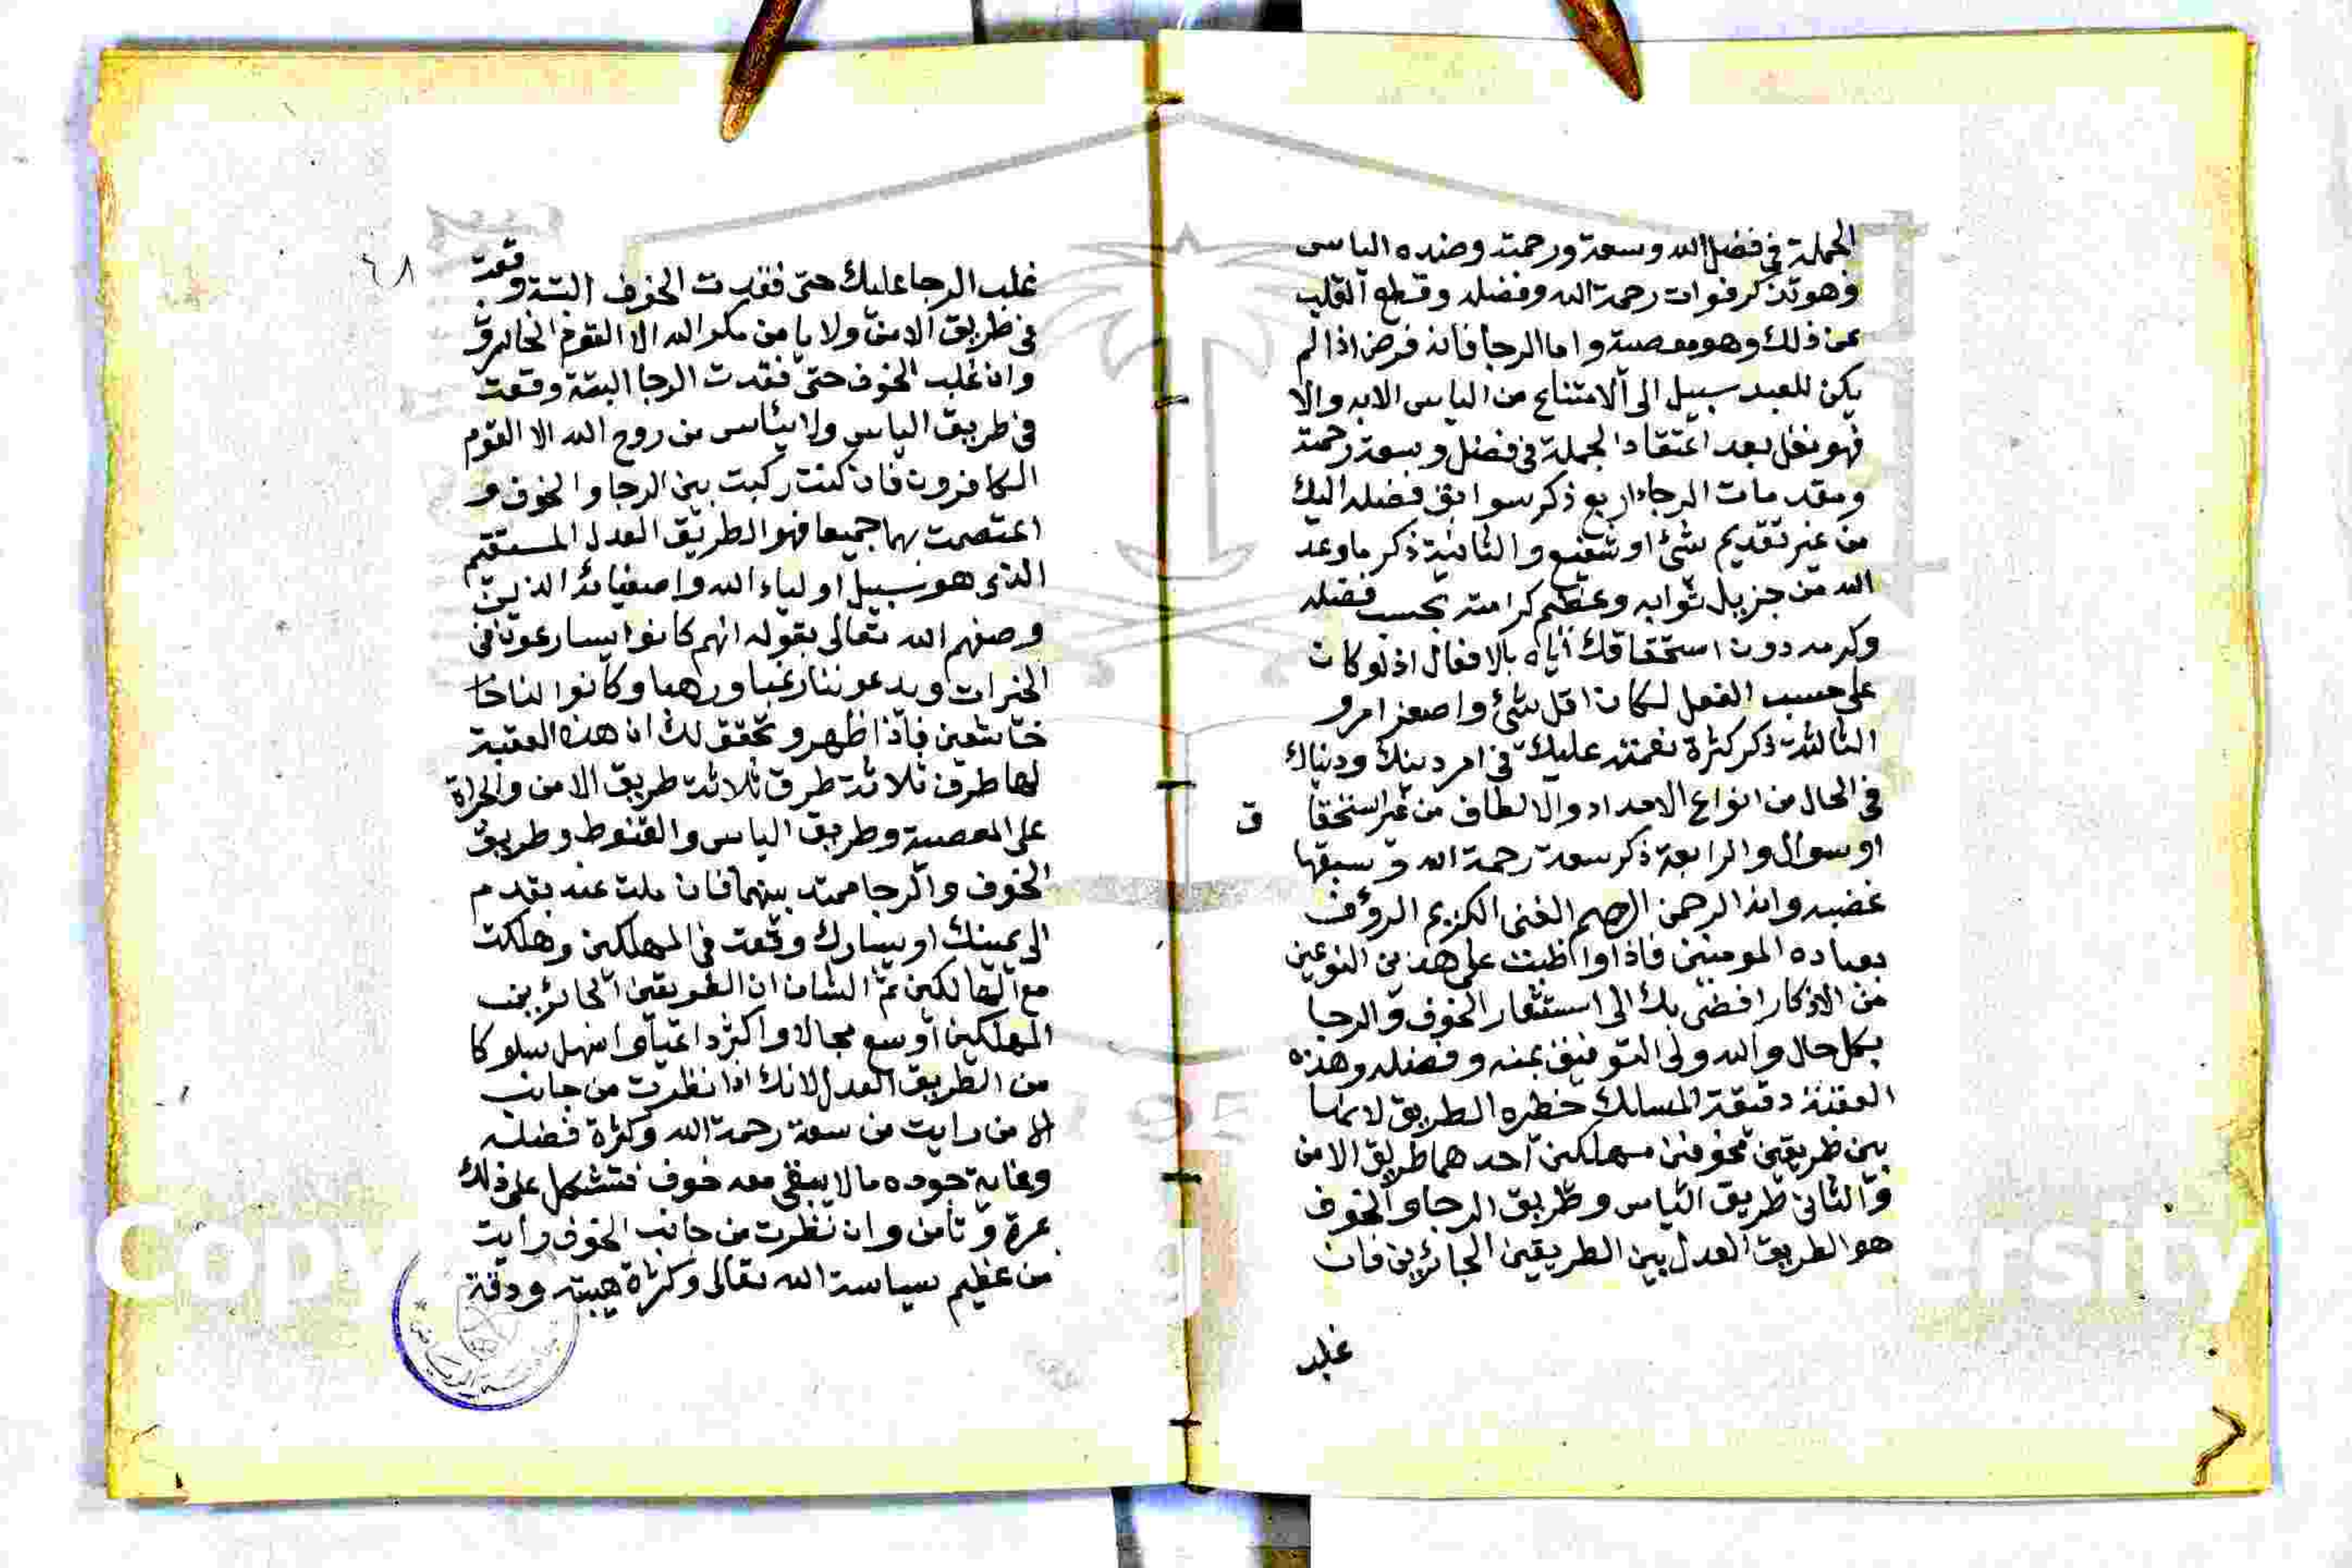 الجملة في فضل الله وسعة ورحمة وضده الياس
وهو تذكر فوات رحمة الله وفضله وقطع القلب
عن ذلك وهو معصية واما الرجا فانه فرض اذا لم
يكن للعبد سبيل الى الامتناع من الياس الا به والا
فهو نفل بعد اعتقاد الجملة في فضل وسعة رحمة
ومقدمات الرجاء اربع ذكر سوابق فضله اليك
من غير تقديم شئ او شفيع والثانية ذكر ما وعد
الله من جزيل ثوابه وعظيم كرامته بحسب فضله
وكرمه دون استحقاقك اياه بالافعال اذ لو كان
على حسب الفعل لكان اقل شئ واصغر امر و
الثالثة ذكر كثرة نعمته عليك في امر دينك ودنياك
في الحال من انواع الامداد والالطاف من غير استحقاق
او سوال والرابعة ذكر سعة رحمة الله و سبقها
غضبه وانه الرحمن الرحيم الغنى الكريم الروف
بعباده المومنين فاذا واظبت على هذين النوعين
من الاذكار افضى بك الى استشعار الخوف والرجا
بكل حال والله ولى التوفيق بمنه وفضله وهذه
العقبة دقيقة المسالك خطره الطريق لانها
بين طريقين مخوفين مهلكين احدهما طريق الامن
والثاني طريق الياس وطريق الرجا والخوف
هو الطريق العدل بين الطريقين الجائرين فان
غلب
٦٨
غلب الرجا عليك حتى فقدت الخوف البتة وقعت
في طريق الامن ولا يامن مكر الله الا القوم الخاسرو
وان غلب الخوف حتى فقدت الرجا البتة وقعت
في طريق الياس ولا يئاس من روح الله الا القوم
الكافرون فان كنت ركبت بين الرجا والخوف و
اعتصمت بهما جميعا فهو الطريق العدل المستقيم
الذى هو سبيل اولياء الله واصفيائه الذين
وصفهم الله تعالى بقوله انهم كانوا يسارعون في
الخيرات ويدعوننا رغبا ورهبا وكانوا لنا
خاشعين فاذا ظهر وتحقق لك ان هذه العقبة
لها طرف ثلاثة طرق ثلاثة طريق الامن والجراة
على المعصية وطريق الياس والقنوط وطريق
الخوف والرجا ممتد بينهما فان ملت عنه بقدم
الى يمينك او يسارك وقعت في المهلكين وهلكت
مع الهالكين ثم الشان ان الطريقين الجائرين
المهلكين اوسع مجالا واكثر داعيا واسهل سلوكا
من الطريق العدل لانك اذا نظرت من جانب
الامن رايت من سعة رحمة الله وكثرة فضله
وغاية جوده ما لا يبقى معه خوف فتتكل على ذلك
بمرة و تامن وان نظرت من جانب الخوف رايت
من عظيم سياسة الله تعالى وكثرة هيبته ودقة